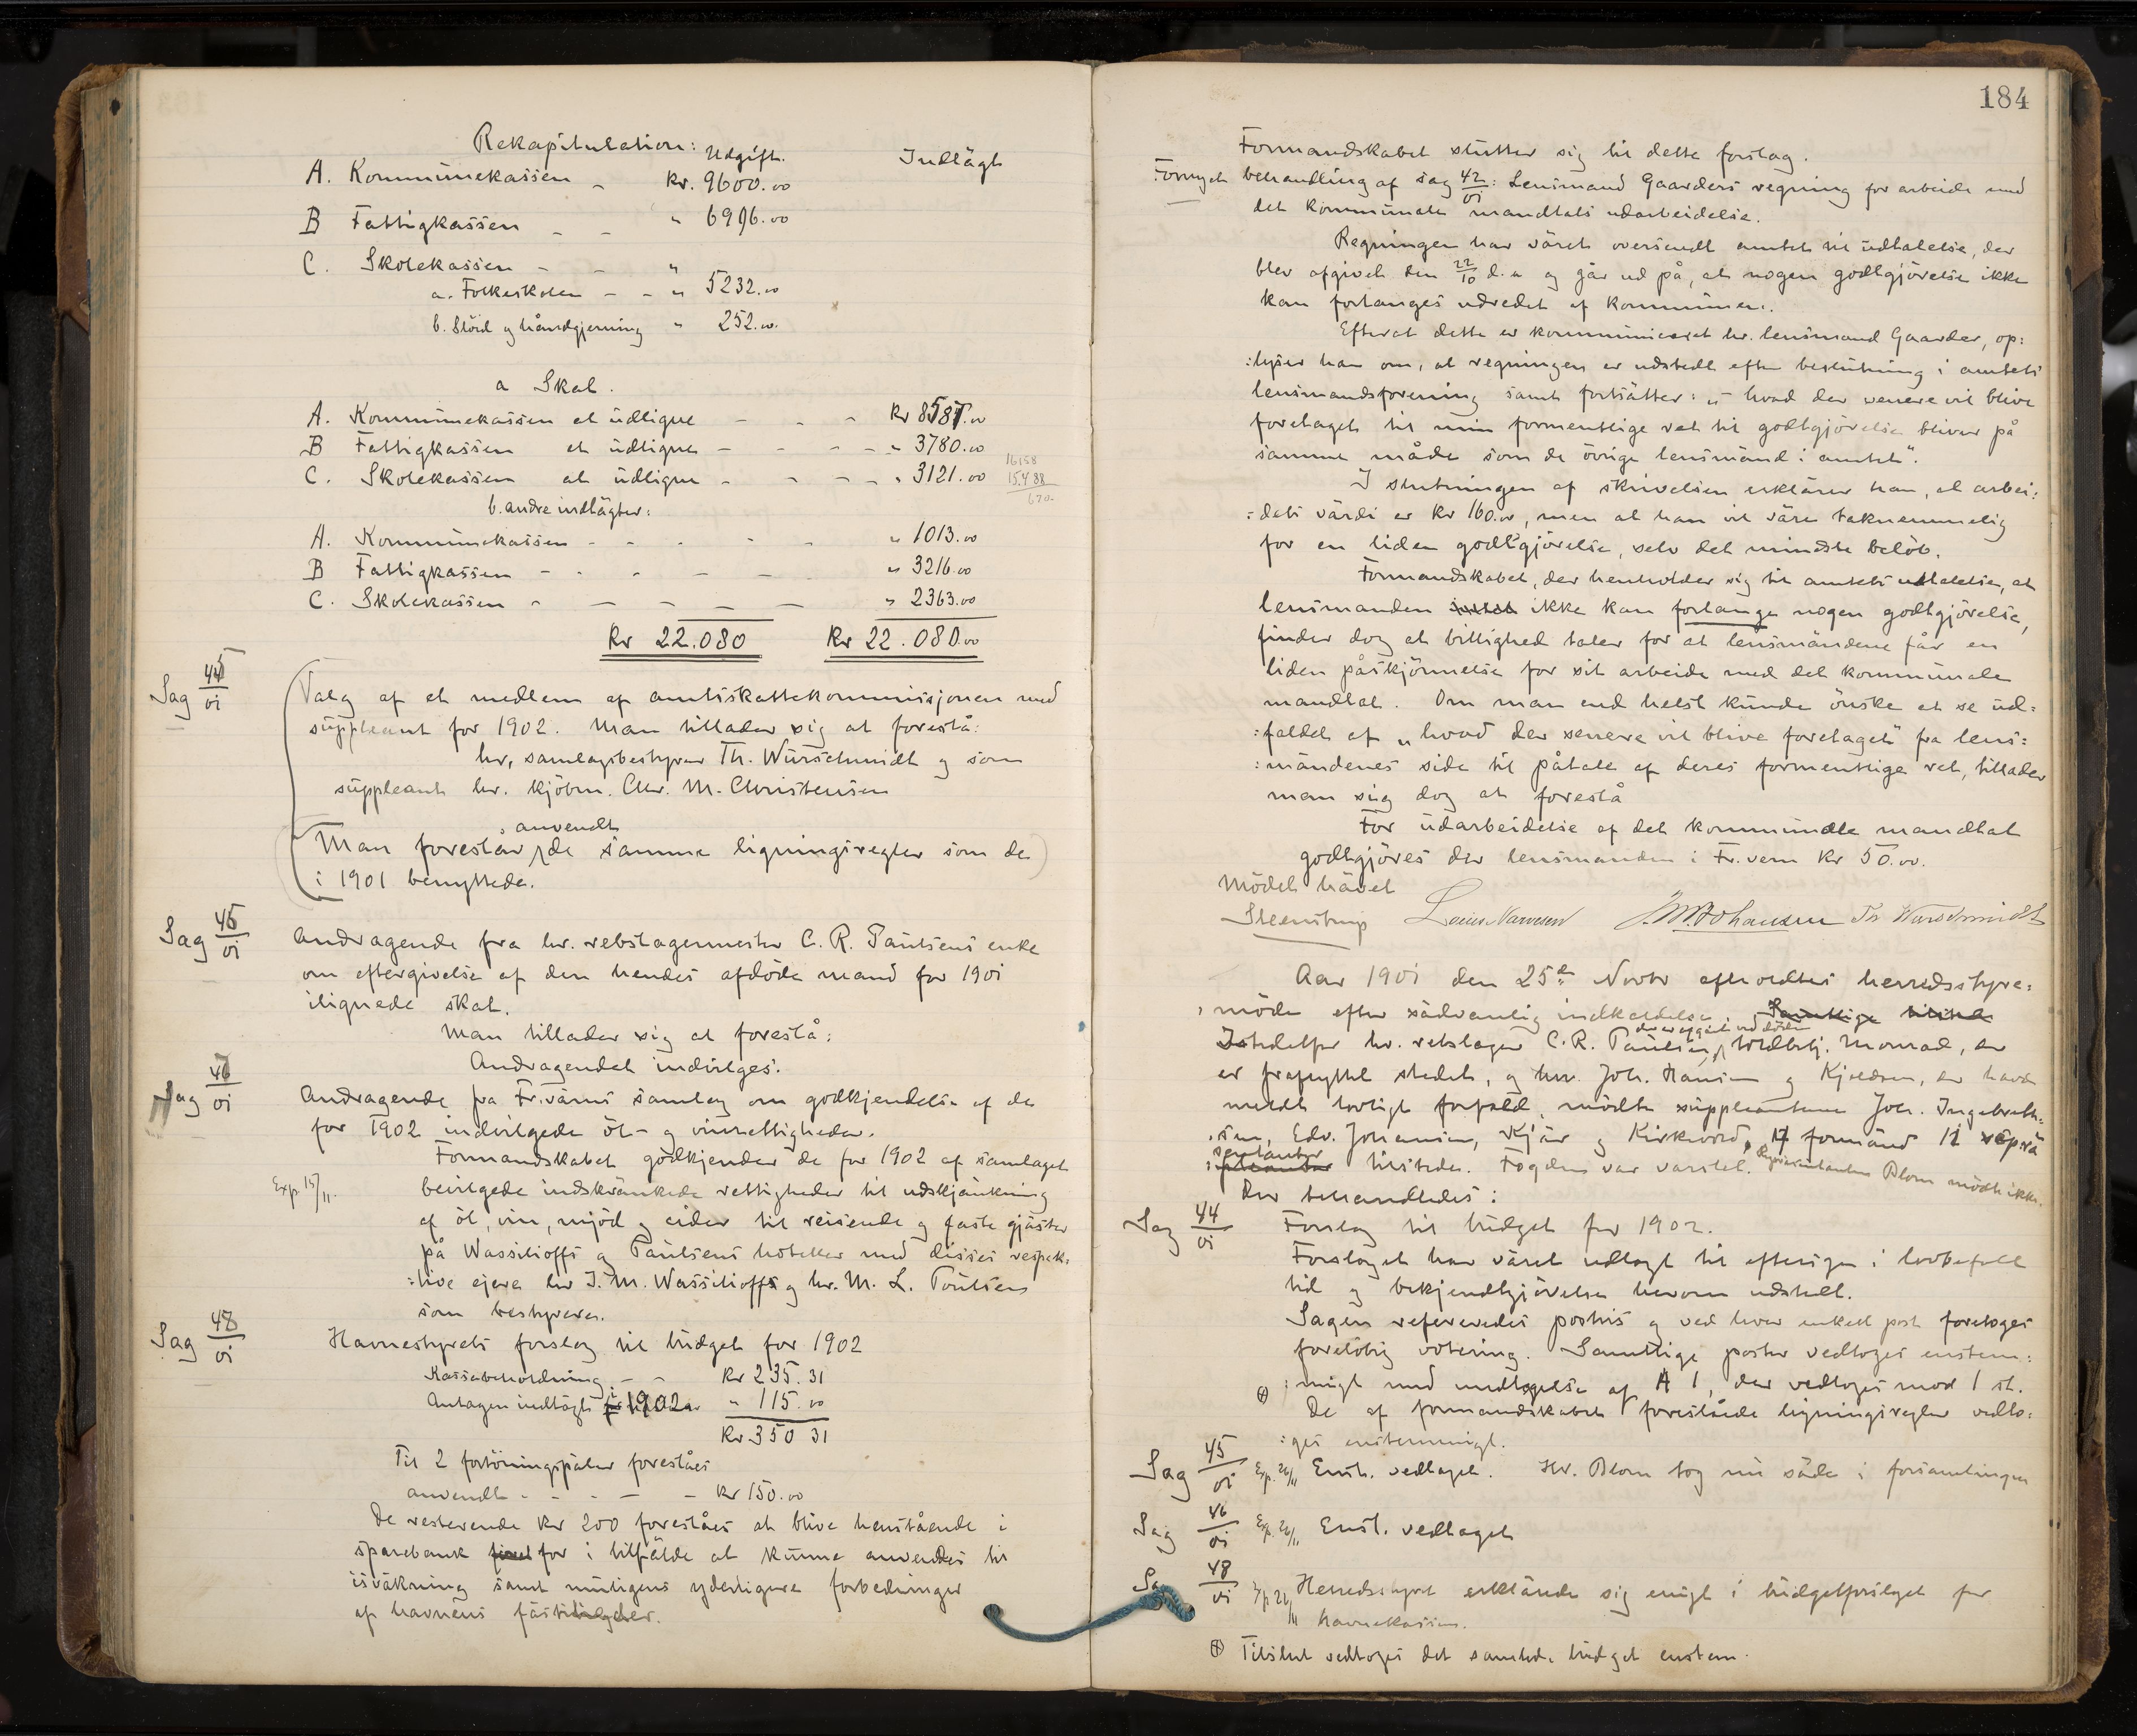 Rekapitulation: Udgift. Indtägt
A. Kommunekassen - kr. 9600.00
B Fattigkassen - - " 6996.00
C. Skolekassen - - "
a. Folkeskolen - - " 5232.00
b. Slöid og håndgjerning " 252.00.
a Skat.
A. Kommunekassen at udligne - - - kr 8587.00
B Fattigkassen at udligne - - - - " 3780.00
C. Skolekassen at udligne - - - - " 3121.00
16158
15488
670.
b. andre indtägter:
A. Kommunekassen - - - - - " 1013.00
B Fattigkassen - - - - - " 3216.00
C. Skolekassen - - - - - " 2363.00
Kr 22.080 Kr 22.080.00
Sag 45/01 Valg af et medlem af amtsskattekommissjonen med
suppleant for 1902. Man tillader sig at foreslå:
hr. samlagsbestyrer Th. Würschmidt og som
suppleant hr. kjöbm. Chr. M. Christensen
anvendt
Man foreslår de samme ligningsregler som de
i 1901 benyttede.
Sag 46/01 Andragende fra hr. rebslagermester C. R. Paulsens enke
om eftergivelse af den hendes afdöde mand for 1901
ilignede skat.
Man tillader sig at foreslå:
Andragendet indvilges.
Sag 01 Andragende fra Fr.värns samlag om godkjendelse af de
for 1902 indvilgede öl- og vinrettigheder.
Formandskabet godkjender de for 1902 af samlaget
Exp. 15/11. bevilgede indskränkede rettigheder til udskjänkning
af öl, vin, mjöd og cider til reisende og faste gjäster
på Wassilioffs og Paulsens hoteller med disses respek:
:tive ejere hr J. M. Wassilioff og hr. M. L. Poulsen
som bestyrere.
Sag 48/01 Havnestyrets forslag til budget for 1902
Kassabeholdning - - Kr 235.31
Antagen indtägt i 1902 " 115.00
Kr 350 31
Til 2 fortöiningspäler foreslåes
anvendt - - - - - Kr 150.00
De resterende Kr 200 foreslåes at blive henstående i
sparebank for i tilfälde at kunne anvendes til
isväkning samt muligens yderligere forbedringer
af havnens fästligheder.
184
Formandskabet slutter sig til dette forslag.
Fornyet behandling af sag 42/01: Lensmand Gaarders regning for arbeide med
det kommunale mandtals udarbeidelse.
Regningen har väret oversendt amtet til udtalelse, der
blev afgivet den 22/10 d. a og går ud på, at nogen godtgjörelse ikke
kan forlanges udredet af kommunen.
Efterat dette er kommuniceret hr. lensmand Gaarder, op:
:lyser han om, at regningen er udstedt efter beslutning i amtets
lensmandsforening samt fortsätter: "hvad der senere vil blive
foretaget til min formentlige ret til godtgjörelse bliver på
samme måde som de övrige lensmänd i amtet".
I slutningen af skrivelsen erklärer han, at arbei:
:dets värdi er kr 160.00, men at han vil väre taknemmelig
for en liden godtgjörelse, selv det mindste belöb.
Formandskabet, der henholder sig til amtets udtalelse, at
lensmanden ikke kan forlange nogen godtgjörelse,
finder dog at billighed taler for at lensmändene får en
liden påskjönnelse for sit arbeide med det kommunale
mandtal. Om man end helst kunde önske at se ud:
:faldet af "hvad der senere vil blive foretaget" fra lens:
:mändenes side til påtale af deres formentlige ret, tillader
man sig dog at foreslå
For udarbeidelse af det kommunale mandtal
godtgjöres der lensmanden i Fr. vern Kr 50.00.
Mödet hävet
Steenstrup Louis Narvesen J. M. Johansen Th Würschmidt
Aar 1901 den 25de Novbr afholdtes herredsstyre:
:möde efter sädvanlig indkaldelse. Samtlige
der er afgåt ved döden
Istedetfor hr. rebslager C. R. Paulsen, Monrad, der
er fraflyttet stedet, og hrr. Joh. Hansen og Kjeldsen, der havde
meldt lovligt forfald, mödte suppleanterne Joh. Ingebret:
:sen, Edv. Johansen, Kjär og Kirkevold, 4 formänd 11 reprä
sentanter tilstede. Fogden var varslet. Repräsentanten Blom mödte ikke.
Der behandledes:
Sag 44/01 Forslag til budget for 1902.
Forslaget har väret udlagt til eftersyn i lovbefalt
tid og bekjendtgjörelse herom udstedt.
Sagen refereredes postvis og ved hver enkelt post foretoges
forelöbig votering. Samtlige poster vedtoges enstem:
:migt med undtagelse af A 1, der vedtoges mod 1 st.
⊕ De af formandskabet foreslåede ligningsregler vedto:
:ges enstemmigt.
Sag 45/01 Exp. 26/11 Enst. vedtaget. Hr. Blom tog nu säde i forsamlingen
Sag 46/01 Exp. 26/11 Enst. vedtaget
Sag 48/01 Exp 26/11 Herredsstyret erklärede sig enigt i budgetforslaget for
havnekassen.
⊕ Tilslut vedtoges det samlede budget enstem.